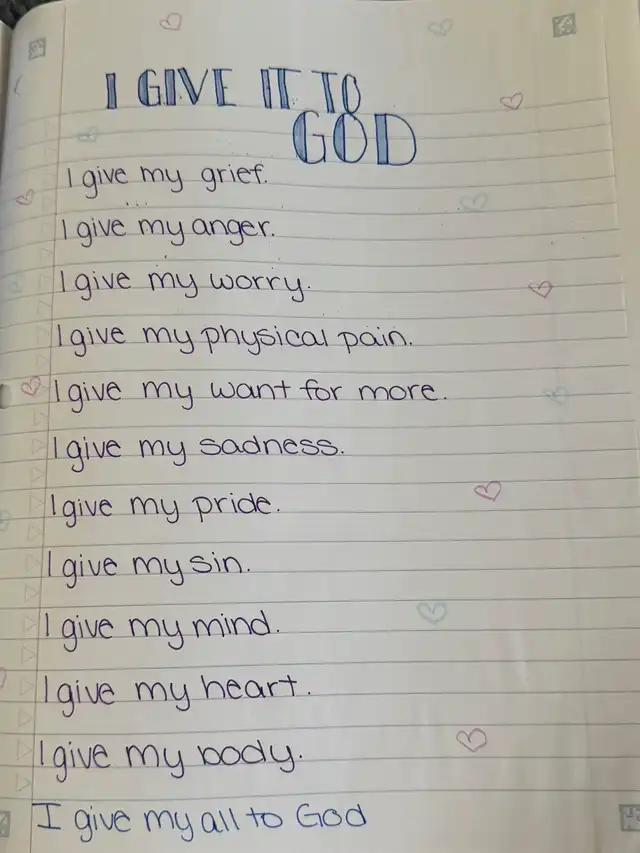 I GIVE IT TO
GOD
I give my grief.
I give my anger.
I give my worry.
I give my physical pain.
I give my want for more.
I give my sadness.
I give my pride.
I give my sin.
I give my mind.
I give my heart.
I give my body.
I give my all to God